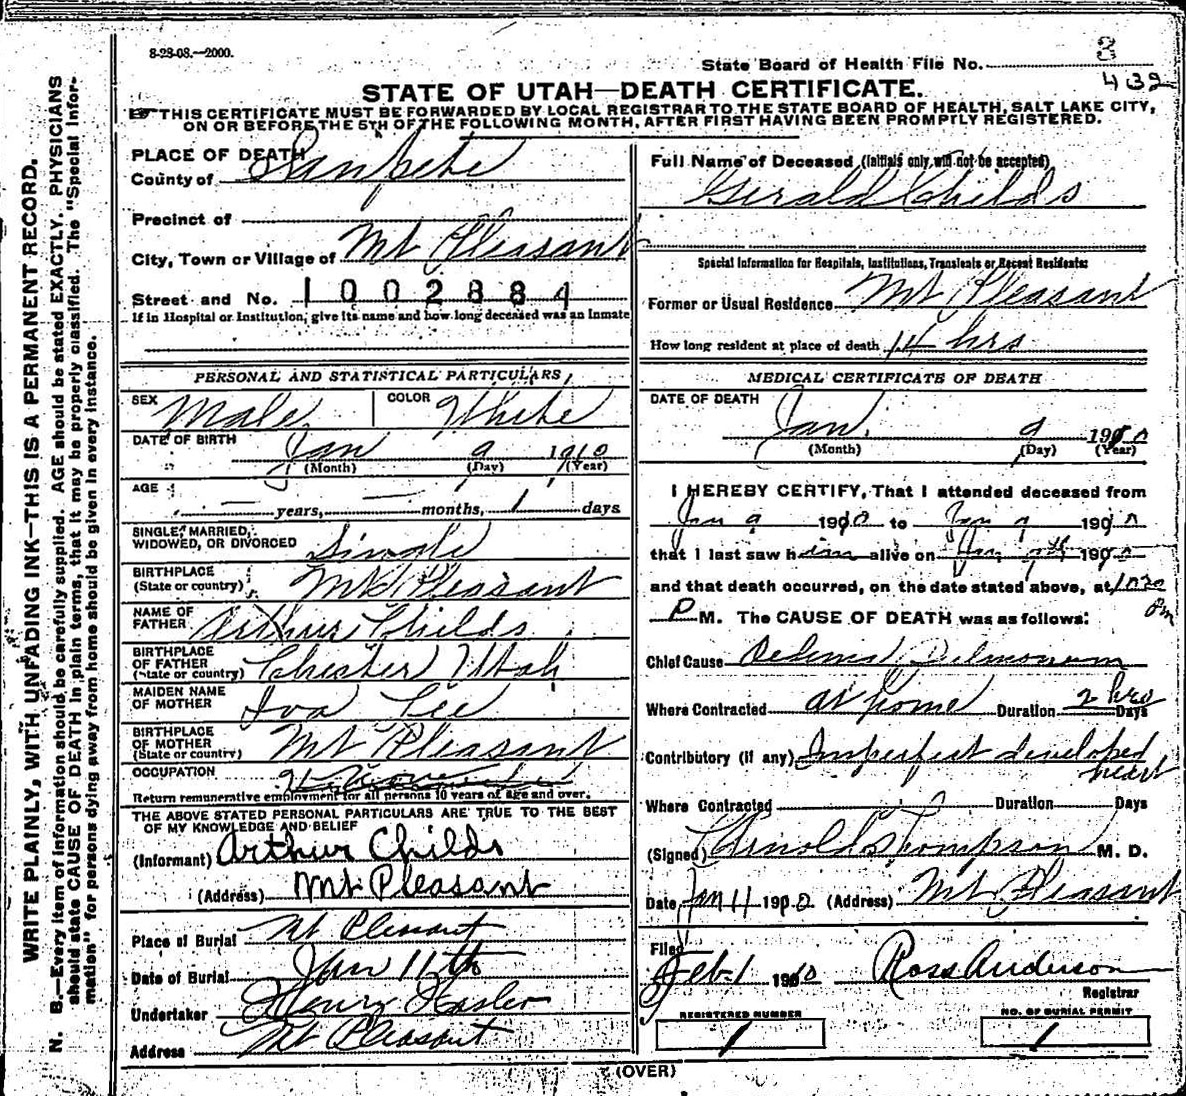 8-28-08.—2000.
State Board of Health File No. 3
432
STATE OF UTAH—DEATH CERTIFICATE.
THIS CERTIFICATE MUST BE FORWARDED BY LOCAL REGISTRAR TO THE STATE BOARD OF HEALTH, SALT LAKE CITY,
ON OR BEFORE THE 5TH OF THE FOLLOWING MONTH, AFTER FIRST HAVING BEEN PROMPTLY REGISTERED.
PLACE OF DEATH
County of Sanpete
Precinct of
City, Town or Village of Mt Pleasant
Street and No. 1002884
If in Hospital or Institution, give its name and how long deceased was an Inmate
PERSONAL AND STATISTICAL PARTICULARS
SEX Male COLOR White
DATE OF BIRTH Jan 9 1910
(Month) (Day) (Year)
AGE — years, — months, 1 days
SINGLE, MARRIED,
WIDOWED, OR DIVORCED Single
BIRTHPLACE
(State or country) Mt Pleasant
NAME OF
FATHER Arthur Childs
BIRTHPLACE
OF FATHER
(State or country) Chester Utah
MAIDEN NAME
OF MOTHER Iva Lee
BIRTHPLACE
OF MOTHER
(State or country) Mt Pleasant
OCCUPATION
Return remunerative employment for all persons 10 years of age and over.
THE ABOVE STATED PERSONAL PARTICULARS ARE TRUE TO THE BEST
OF MY KNOWLEDGE AND BELIEF
(Informant) Arthur Childs
(Address) Mt Pleasant
Place of Burial Mt Pleasant
Date of Burial Jan 11th
Undertaker Henry Hasler
Address Mt Pleasant
Full Name of Deceased (Initials only, will not be accepted)
Gerald Childs
Special Information for Hospitals, Institutions, Transients or Recent Residents:
Former or Usual Residence Mt Pleasant
How long resident at place of death 14 hrs
MEDICAL CERTIFICATE OF DEATH
DATE OF DEATH
Jan. 9 1910
(Month) (Day) (Year)
I HEREBY CERTIFY, That I attended deceased from
Jan 9 1910 to Jan 9 1910
that I last saw him alive on Jan 9th 1910
and that death occurred, on the date stated above, at 1030
P M. The CAUSE OF DEATH was as follows: Pm
Chief Cause Oedema Pulmonum
Where Contracted at home Duration 2 hrs Days
Contributory (if any) Imperfect developed
heart
Where Contracted ? Duration Days
(Signed) Arnold Thompson M. D.
Date Jan 11 1910 (Address) Mt Pleasant
Filed
Feb-1 1910 Ross Anderson
Registrar
REGISTERED NUMBER
1
NO. OF BURIAL PERMIT
1
(OVER)
WRITE PLAINLY, WITH UNFADING INK—THIS IS A PERMANENT RECORD.
N. B.—Every item of information should be carefully supplied. AGE should be stated EXACTLY. PHYSICIANS
should state CAUSE OF DEATH in plain terms, that it may be properly classified. The "Special Infor-
mation" for persons dying away from home should be given in every instance.